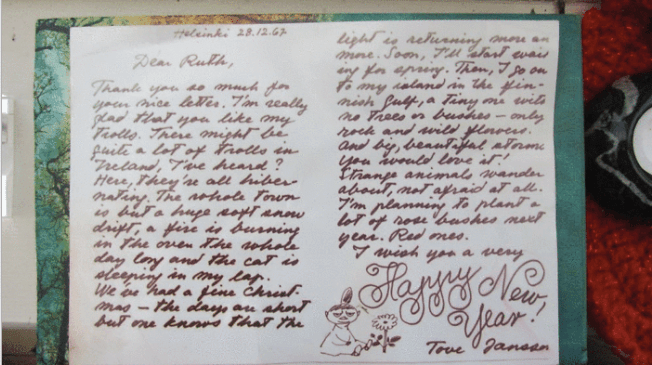 Helsinki 29.12.67
Dear Ruth,
Thank you so much for
your nice letter. I'm really
glad that you like my
trolls. There might be
quite a lot of trolls in
Ireland, I've heard?
Here, they're all hiber
nating. The whole town
is but a huge soft snow
drift, a fire is burning
in the oven the whole
day long and the cat is
sleeping in my lap.
We've had a fine Christ-
mas – the days are short
but one knows that the
light is returning more an
more. Soon, I'll start wait
ing for spring. Then, I go on
to my island in the fin-
nish gulf, a tiny one with
no trees or bushes – only
rock and wild flowers.
And big, beautiful storms
you would love it!
Strange animals wander
about, not afraid at all.
I'm planning to plant a
lot of rose bushes next
year. Red ones.
I wish you a very
Happy New
Year!
Tove Jansson